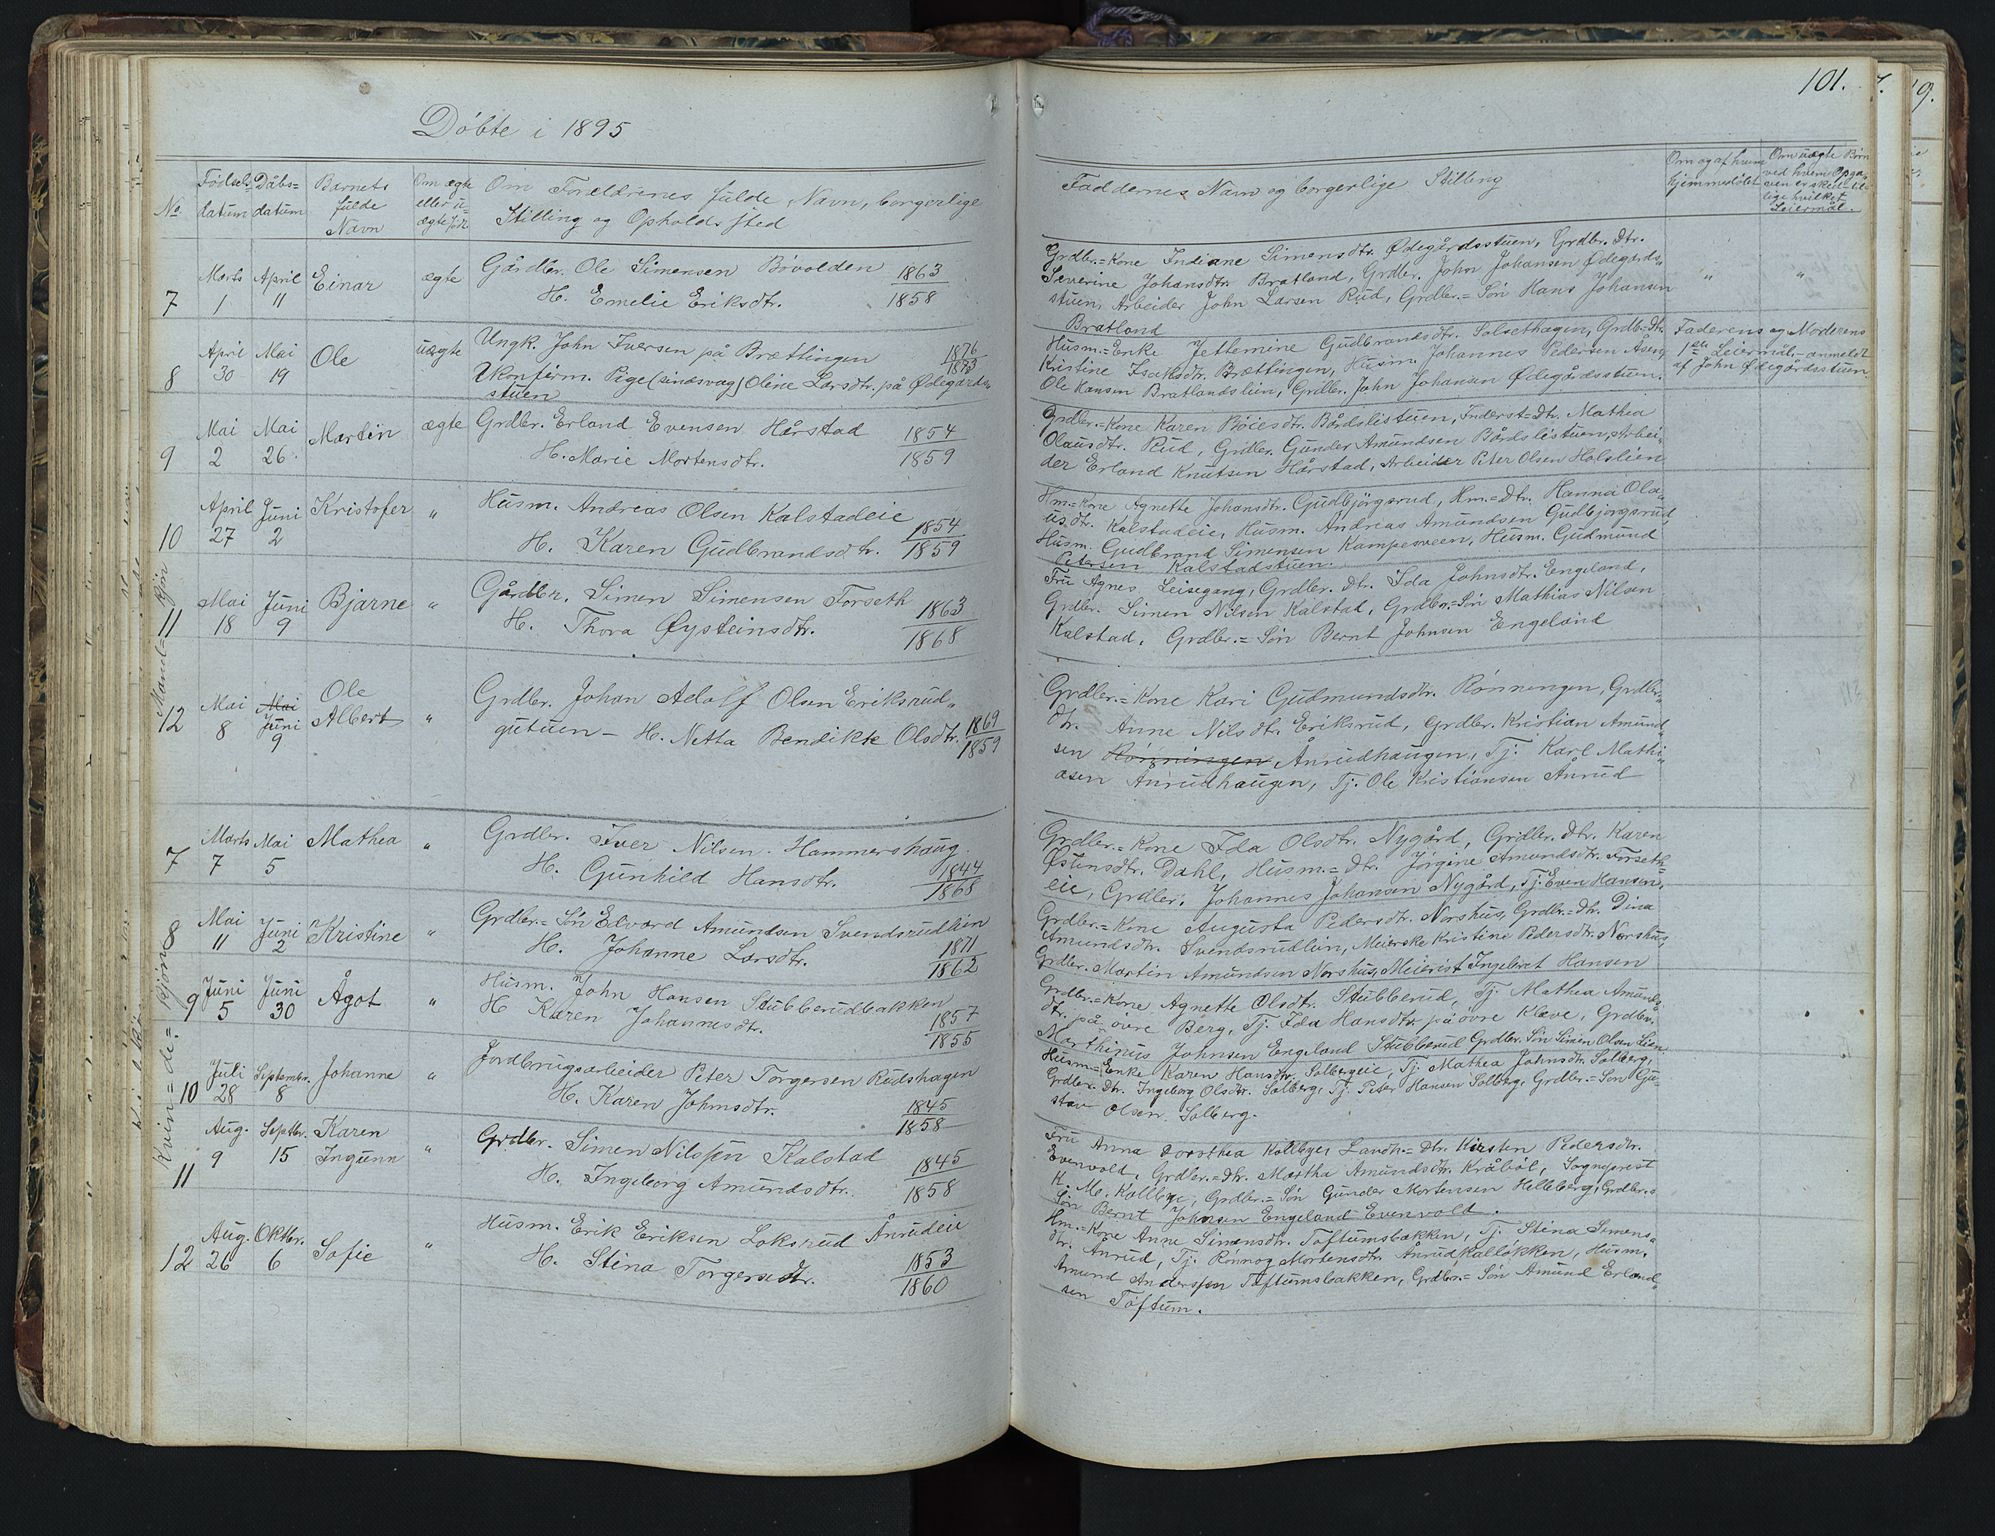 101.
Döbte i 1895
No
Födsels-
datum
Dåbs-
datum
Barnets
fulde
Navn
Om ægte
eller u=
ægte född
Om Forældrenes fulde Navn, borgerlige
Stilling og Opholdssted
Faddernes Navn og borgerlige Stilling
Om og af hvem
hjemmedöbt
Om uægte Börn
ved hvem Opga-
ven er skeet til-
lige hvilket
Leiermål.
Mand=kjön
7
Marts
1
April
11
Einar
ægte
Gårdbr. Ole Simensen Bövolden 1863
H. Emelie Eriksdtr. 1858
Grdbr.=Kone Indiane Simensdtr. Ödegårdsstuen, Grdbr. Dtr.
Severine Johansdtr. Bratland, Grdbr. John Johansen Ödegårds=
stuen, Arbeider John Larsen Rud, Grdbr.=Sön Hans Johansen
Bratland
" "
8
April
30
Mai
19
Ole
uægte
Ungk. John Iversen på Brættingen 1876
Ukonfirm. Pige (sindssvag) Oline Larsdtr. på Ödegårds= 1873
stuen
Husm.=Enke Jettemine Gudbrandsdtr. Solsethagen, Grdb=Dtr.
Kristine Isaksdtr. Brættingen, Husm. Johannes Pedersen Åsen,
Ole Hansen Bratlandslien, Grdbr. John Johansen Ödegårdsstuen.
Faderens og Moderens
1en Leiermål,=anmeldt
af John Ödegårdsstuen.
9
Mai
2
Mai
26.
Martin
ægte
Grdbr. Erland Evensen Hårstad 1854
H. Marie Mortensdtr. 1859
Grdbr.=Kone Karen Böiesdtr. Bårdslistuen, Inderst=Dtr. Mathea
Olausdtr. Rud, Grdbr. Gunder Amundsen Bårdslistuen, Arbei-
der Erland Knutsen Hårstad, Arbeider Peter Olsen Holslien
10
April
27
Juni
2
Kristofer
"
Husm. Andreas Olsen Kalstadeie 1854
H. Karen Gudbrandsdtr. 1859
Hm=Kone Agnette Johansdtr. Gudbjörgsrud, Hm.=Dtr. Hanna Ola=
usdtr. Kalstadeie, Husm. Andreas Amundsen Gudbjörgsrud,
Husm. Gudbrand Simensen Kampesveen, Husm. Gudmund
Petersen Kalstadstuen.
11
Mai
18
Juni
9
Bjarne
"
Gårdbr. Simen Simensen Forseth 1863
H. Thora Øysteinsdtr. 1868
Fru Agnes Leisegang, Grdbr. Dtr. Ida Johnsdtr. Engeland,
Grdbr. Simen Nilsen Kalstad, Grdbr.=Sön Mathias Nilsen
Kalstad, Grdbr.=Sön Bernt Johnsen Engeland
12
Mai
8
Mai
Juni
9
Ole
Albert
"
Grdbr. Johan Adolf Olsen Eriksrud=
gutuen - H. Netta Bendikk Olsdtr. 1869
1859
Grdbr.=Kone Kari Gudmundsdtr. Rönningen, Grdbr.=
Dtr. Anne Nilsdtr. Eriksrud, Grdbr. Kristian Amund=
sen Rönningen Ånrudhaugen, Tj. Karl Mathi=
asen Ånrudhaugen, Tj. Ole Kristiansen Ånrud
Kvin=de=kjön
7
Marts
7
Mai
5
Mathea
"
Grdbr. Iver Nilsen Hammershaug
H. Gunhild Hansdtr. 1844
1868
Grdbr.=Kone Ida Olsdtr. Nygård, Grdbr. Dtr. Karen
Östensdtr. Dahl, Husm.=Dtr. Jörgine Amundsdtr. Forseth=
eie, Grdbr. Johannes Johansen Nygård, Tj. Even Hansen.
8
Mai
11
Juni
2
Kristine
"
Grdbr.=Sön Edvard Amundsen Svendsrudlien
H. Johanne Larsdtr. 1871
1862
Grdbr.=Kone Augusta Pedersdtr. Norshus, Grdbr.=Dtr. Dina
Amundsdtr. Svendsrudlien, Meierske Kristine Pedersdtr. Norshus
Grdbr. Martin Amundsen Norshus, Meierist Ingebret Hansen
9
Juni
5
Juni
30
Ågot
"
Husm. John Hansen Stubberudbakken
H Karen Johannesdtr. 1857
1855
Grdbr.=Kone Agnette Olsdtr. Stubberud, Tj. Mathea Amunds=
dtr. på övre Berg, Tj. Ida Hansdtr. på övre Kleve, Grdbr.
Marthinus Johnsen Engeland Stubberud Grdbr. Sön Simen Olsen Lien
10
Juli
28
Septembr.
8
Johanne
"
Jordbrugsarbeider Peter Torgersen Rudshagen
H. Karen Johnsdtr. 1845
1858
Husm=Enke Karen Hansdtr. Solbergeie, Tj. Mathea Johnsdtr. Solberg,
Grdbr. Dtr. Ingeborg Olsdtr. Solberg, Tj. Peter Hansen Solberg, Grdbr.=Sön Gu=
stav Olsen Solberg.
11
Aug.
9
Septbr.
15
Karen
Ingunn
"
Grdbr. Simen Nilssen Kalstad
H. Ingeborg Amundsdtr. 1845
1858
Fru Anna Dorothea Kolbye, Landh.=Dtr. Kirsten Pedersdtr.
Evenvold, Grdbr.=Dtr. Martha Amundsdtr. Kråböl, Sogneprest
K. M. Kolbye, Grdbr.=Sön Gunder Mortensen Helleberg, Grdbr.=
Sön Bernt Johnsen Engeland Evenvold.
12
Aug.
26
Oktbr.
6
Sofie
"
Husm. Erik Eriksen Loksrud Ånrudeie
H. Stina Torgersdtr. 1853
1860
Hm.=Kone Anne Simensdtr. Töftumsbakken, Tj. Stina Simens=
dtr. Ånrud, Tj. Rönnog Mortensdtr. Ånrudkallökken, Husm.
Amund Anderssen Töftumsbakken, Grdbr.=Sön Amund Erland=
sen Töftum.